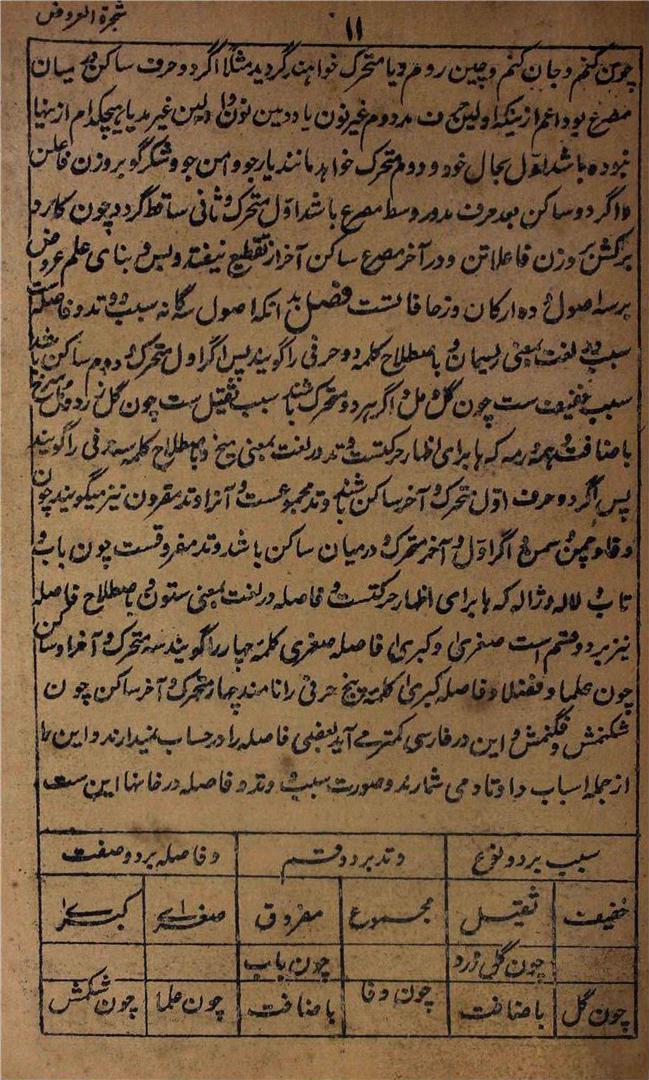 شجرة العروض
۱۱
چون کنم و جان کنم و چین روم دیا متحرک خواهند گردید مثلا اگر دو حرف ساکن میان
مصرع بود اعم از ینکه اولین حرف مد دوم غیر نون یا دومین نون و اولین غیر مد یا هیچکدام از ینها
نبوده باشد اول بحال خود و دوم متحرک خواهد مانند یار جو و امن جو و شکر گو بر وزن فاعلن
و اگر دو ساکن بعد حرف مد در وسط مصرع باشد اول متحرک و ثانی ساقط گردد چون کارد
برکش بر وزن فاعلاتن و در آخر مصرع ساکن آخر از تقطیع نیفتد و بس و بنای علم عروض
بر سه اصول و ده ارکان و زحافاتست فصل بدانکه اصول سه گانه سبب و وتد و فاصله است
سبب در لغت بمعنی ریسمان و باصطلاح کلمه دو حرفی را گویند پس اگر اول متحرک و دوم ساکن باشد
سبب خفیف ست چون گل و مل و اگر هر دو متحرک باشند سبب ثقیل ست چون گل زرد و مل سرخ
باضافت و همه و رمه که ها برای اظهار حرکتست وتد در لغت بمعنی میخ و باصطلاح کلمه سه حرفی را گویند
پس اگر دو حرف اول متحرک و آخر ساکن باشد وتد مجموعست و آنرا وتد مقرون نیز میگویند چون
وفا و چمن و سمن و اگر اول و آخر متحرک و درمیان ساکن باشد وتد مفروقست چون باب و
تاب و لاله و ژاله که ها برای اظهار حرکتست و فاصله در لغت بمعنی ستون و باصطلاح فاصله
نیز بر دو قسم است صغری و کبری فاصله صغری کلمه چهار را گویند سه متحرک و آخر او ساکن
چون علما و فضلا و فاصله کبری کلمه پنج حرفی را نامند چهار متحرک و آخر ساکن چون
شکنمش و فگنمش و این در فارسی کمتر می آید بعضی فاصله را در حساب نمیدارند و این را
از جمله اسباب و اوتاد می شمارند و صورت سبب و وتد و فاصله در خانها این ست
سبب بر دو نوع | وتد بر دو قسم | و فاصله بر دو صفت
خفیف | ثقیل | مجموع | مفروق | صغرای | کبرای
چون گل زرد | چون باب
چون گل | باضافت | چون وفا | باضافت | چون علما | چون شکنمش